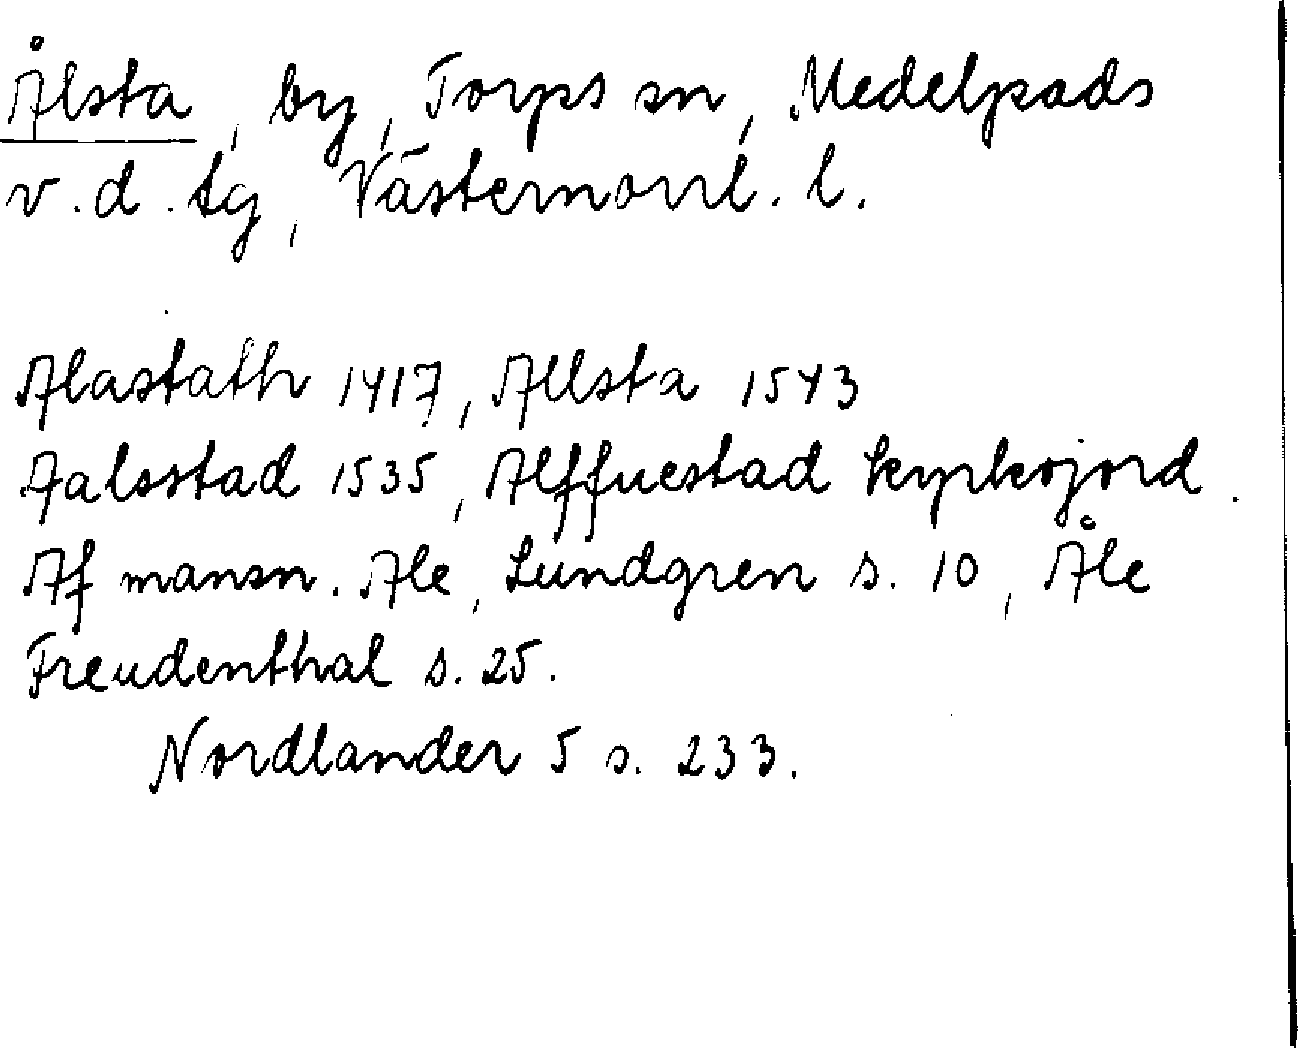 Ålsta, by, Torps sn, Medelpads
v. d. tg, Västernorrl. l.
Alastath 1417, Allsta 1543
Aalsstad 1535, Alffuestad kyrkojord.
Af mansn. Ale, Lundgren s. 10, Åle
Freudenthal s. 25.
Nordlander 5 s. 233.